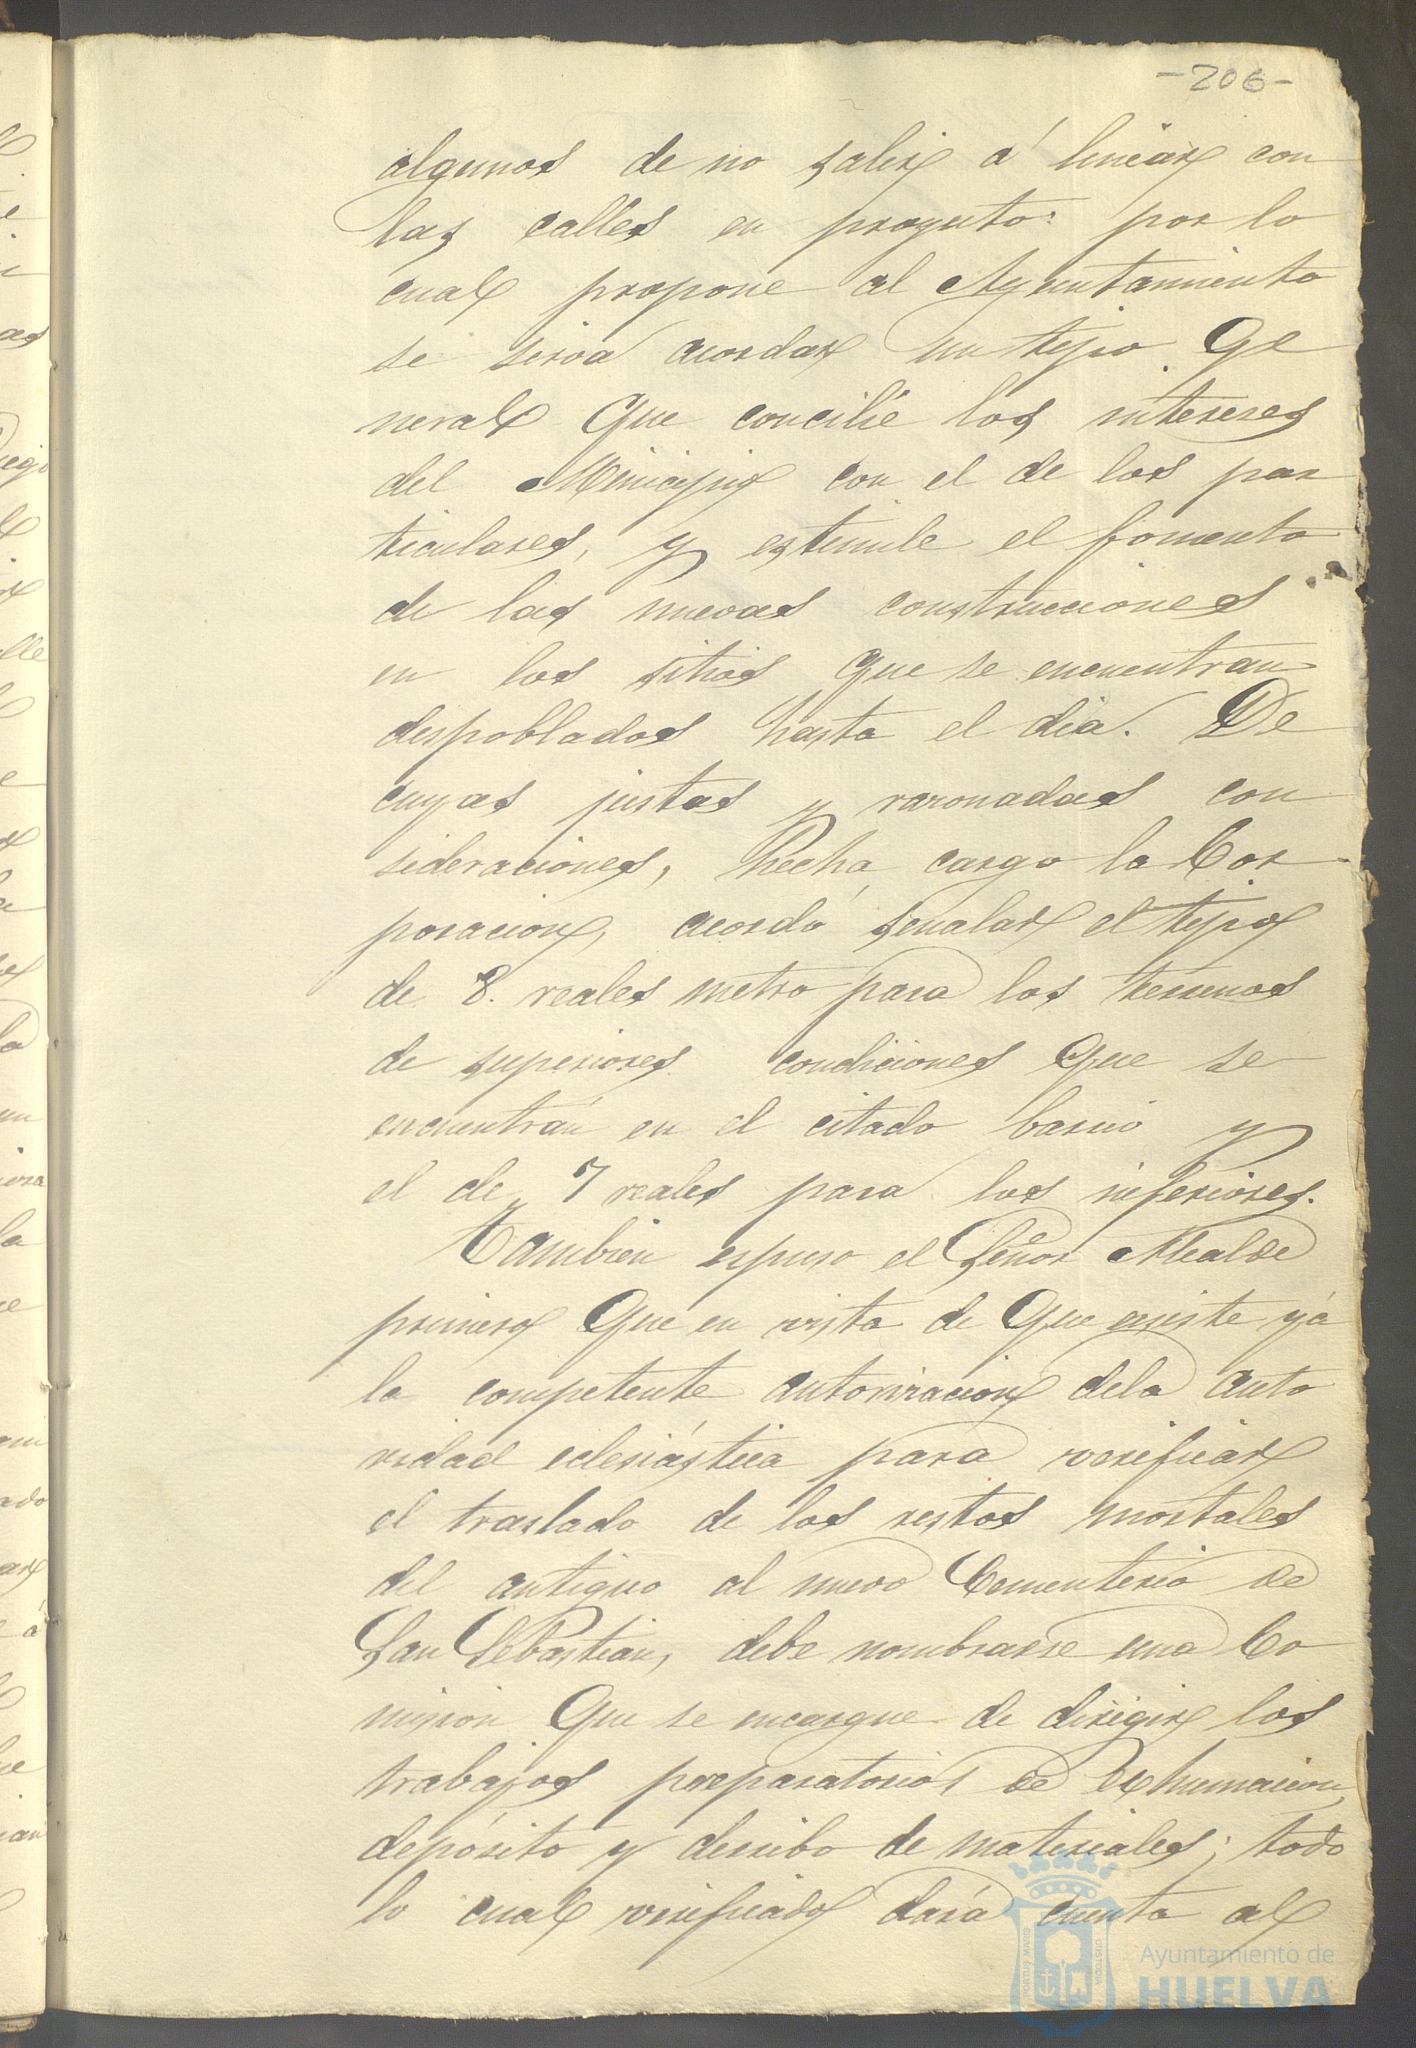 -206-
algunos de no salir á linear con
las calles en proyecto: por lo
cual propone al Ayuntamiento
se sirva acordar un tipo Ge
neral que concilie los intereses
del Municipio con el de los par
ticulares, y estimule el fomento
de las nuevas construcciones
en los sitios que se encuentran
despoblados hasta el dia. De
cuyas justas y razonadas con
sideraciones, hecha cargo la Cor-
poracion, acordó señalar el tipo
de 8. reales metro para los terrenos
de superiores condiciones que se
encuentran en el citado barrio y
el de 7 reales para los inferiores.
Tambien espuso el Señor Alcalde
primero que en vista de que existe yá
la competente autorizacion dela auto
ridad eclesiástica para verificar
el traslado de los restos mortales
del antiguo al nuevo Cementerio de
San Sebastian, debe nombrarse una Co
mision que se encargue de dirigir los
trabajos preparatorios de Exhumacion,
depósito y derribo de materiales; todo
lo cual verificado dará cuenta al
Ayuntamiento de
HUELVA